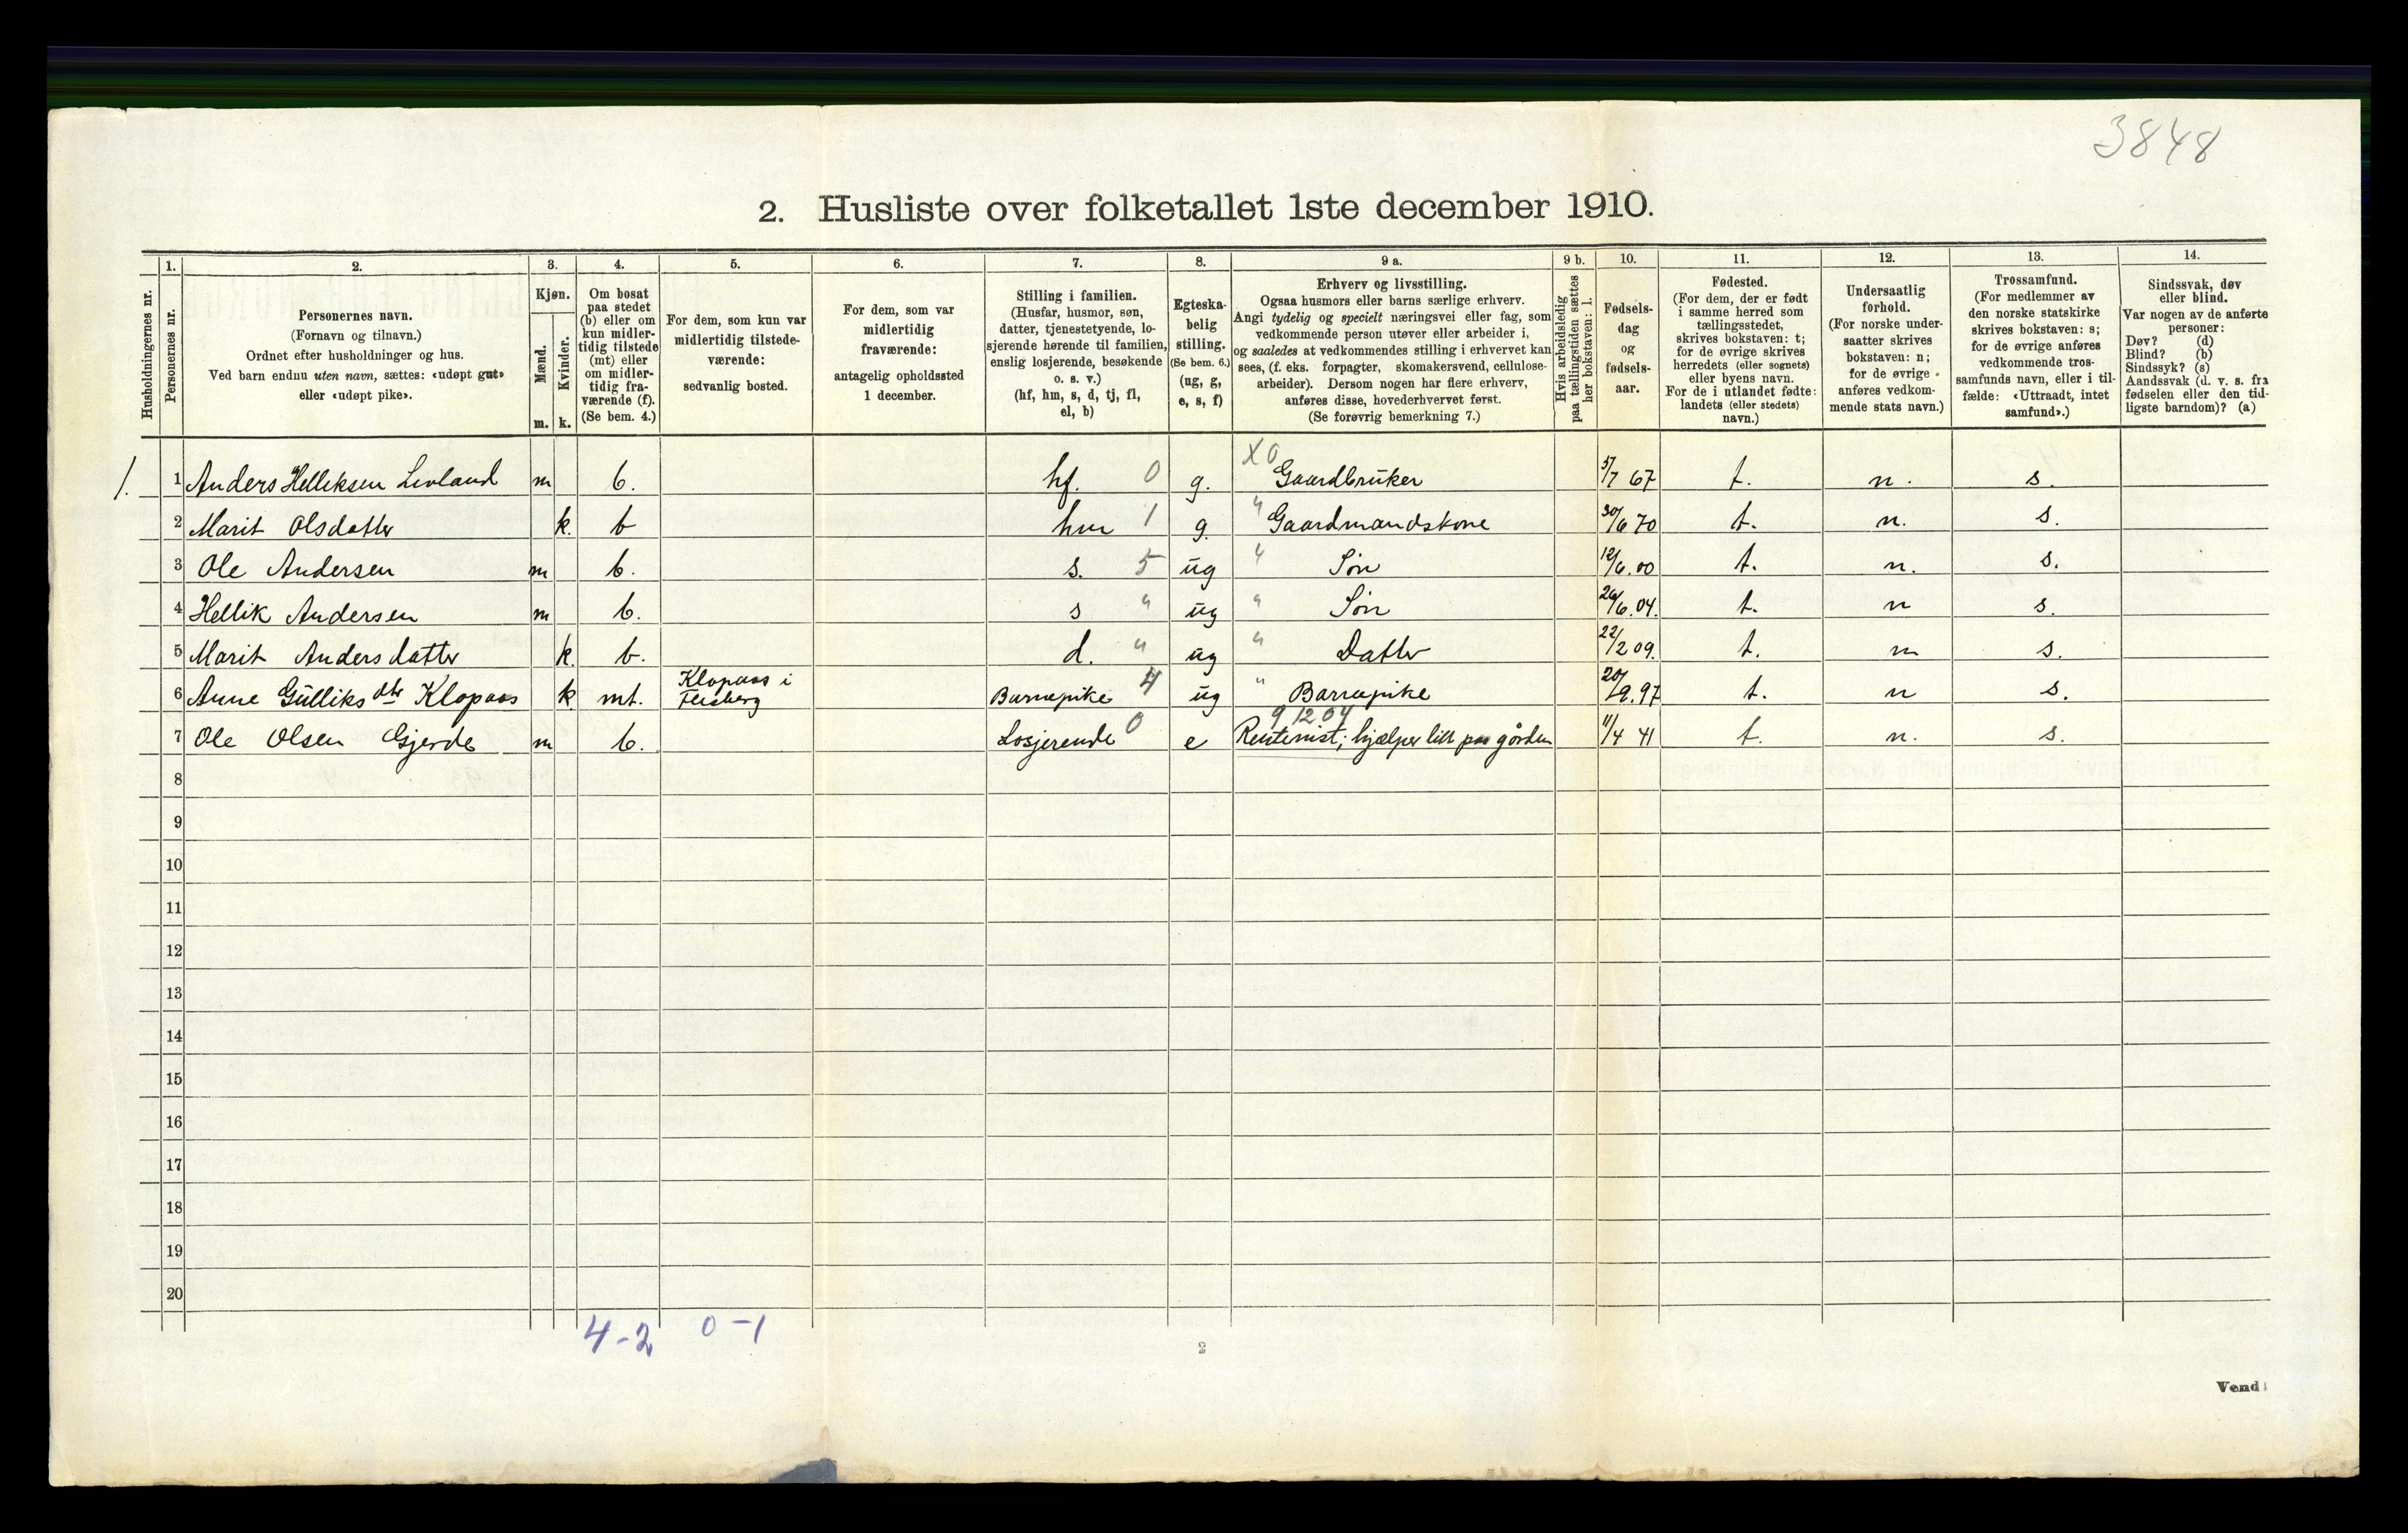 3848
2. Husliste over folketallet 1ste december 1910.
Husholdningernes nr.
1.
Personernes nr.
2.
Personernes navn.
(Fornavn og tilnavn.)
Ordnet efter husholdninger og hus.
Ved barn endnu uten navn, sættes: «udøpt gut»
eller «udøpt pike».
3.
Kjøn.
Mænd.
m.
Kvinder.
k.
4.
Om bosat
paa stedet
(b) eller om
kun midler-
tidig tilstede
(mt) eller
om midler-
tidig fra-
værende (f).
(Se bem. 4.)
5.
For dem, som kun var
midlertidig tilstede-
værende:
sedvanlig bosted.
6.
For dem, som var
midlertidig
fraværende:
antagelig opholdssted
1 december.
7.
Stilling i familien.
(Husfar, husmor, søn,
datter, tjenestetyende, lo-
sjerende hørende til familien,
enslig losjerende, besøkende
o. s. v.)
(hf, hm, s, d, tj, fl,
el, b)
8.
Egteska-
belig
stilling.
(Se bem. 6.)
(ug, g,
e, s, f)
9 a.
Erhverv og livsstilling.
Ogsaa husmors eller barns særlige erhverv.
Angi tydelig og specielt næringsvei eller fag, som
vedkommende person utøver eller arbeider i,
og saaledes at vedkommendes stilling i erhvervet kan
sees, (f. eks. forpagter, skomakersvend, cellulose-
arbeider). Dersom nogen har flere erhverv,
anføres disse, hovederhvervet først.
(Se forøvrig bemerkning 7.)
9 b.
Hvis arbeidsledig
paa tællingstiden sættes
her bokstaven: l.
10.
Fødsels-
dag
og
fødsels-
aar.
11.
Fødested.
(For dem, der er født
i samme herred som
tællingsstedet,
skrives bokstaven: t;
for de øvrige skrives
herredets (eller sognets)
eller byens navn.
For de i utlandet fødte:
landets (eller stedets)
navn.)
12.
Undersaatlig
forhold.
(For norske under-
saatter skrives
bokstaven: n;
for de øvrige
anføres vedkom-
mende stats navn.)
13.
Trossamfund.
(For medlemmer av
den norske statskirke
skrives bokstaven: s;
for de øvrige anføres
vedkommende tros-
samfunds navn, eller i til-
fælde: «Uttraadt, intet
samfund».)
14.
Sindssvak, døv
eller blind.
Var nogen av de anførte
personer:
Døv? (d)
Blind? (b)
Sindssyk? (s)
Aandssvak (d. v. s. fra
fødselen eller den tid-
ligste barndom)? (a)
X 0
1. 1 Anders Helliksen Levland m b. hf. 0 g. Gaardbruker 5/7 67 t. n. s.
2 Marit Olsdatter k. b hm 1 g. " Gaardmandskone 30/6 70 t. n. s.
3 Ole Andersen m b. s. 5 ug " Søn 12/6.00 t. n. s.
4 Hellik Andersen m b. s " ug " Søn 26/6.04. t. n s.
5 Marit Andersdatter k. b. d. " ug " Datter 22/2 09. t. n s.
6 Anne Gulliksdtr Klopaas k mt. Klopaas i Flesberg Barnepike 4 ug " Barnepike 20/9.97 t. n s.
9 12 04
7 Ole Olsen Gjerde m b. Losjerende 0 e Rentenist; hjælper litt paa gården 11/4 41 t. n. s.
8
9
10
11
12
13
14
15
16
17
18
19
20
4-2 0-1
2
Vend!